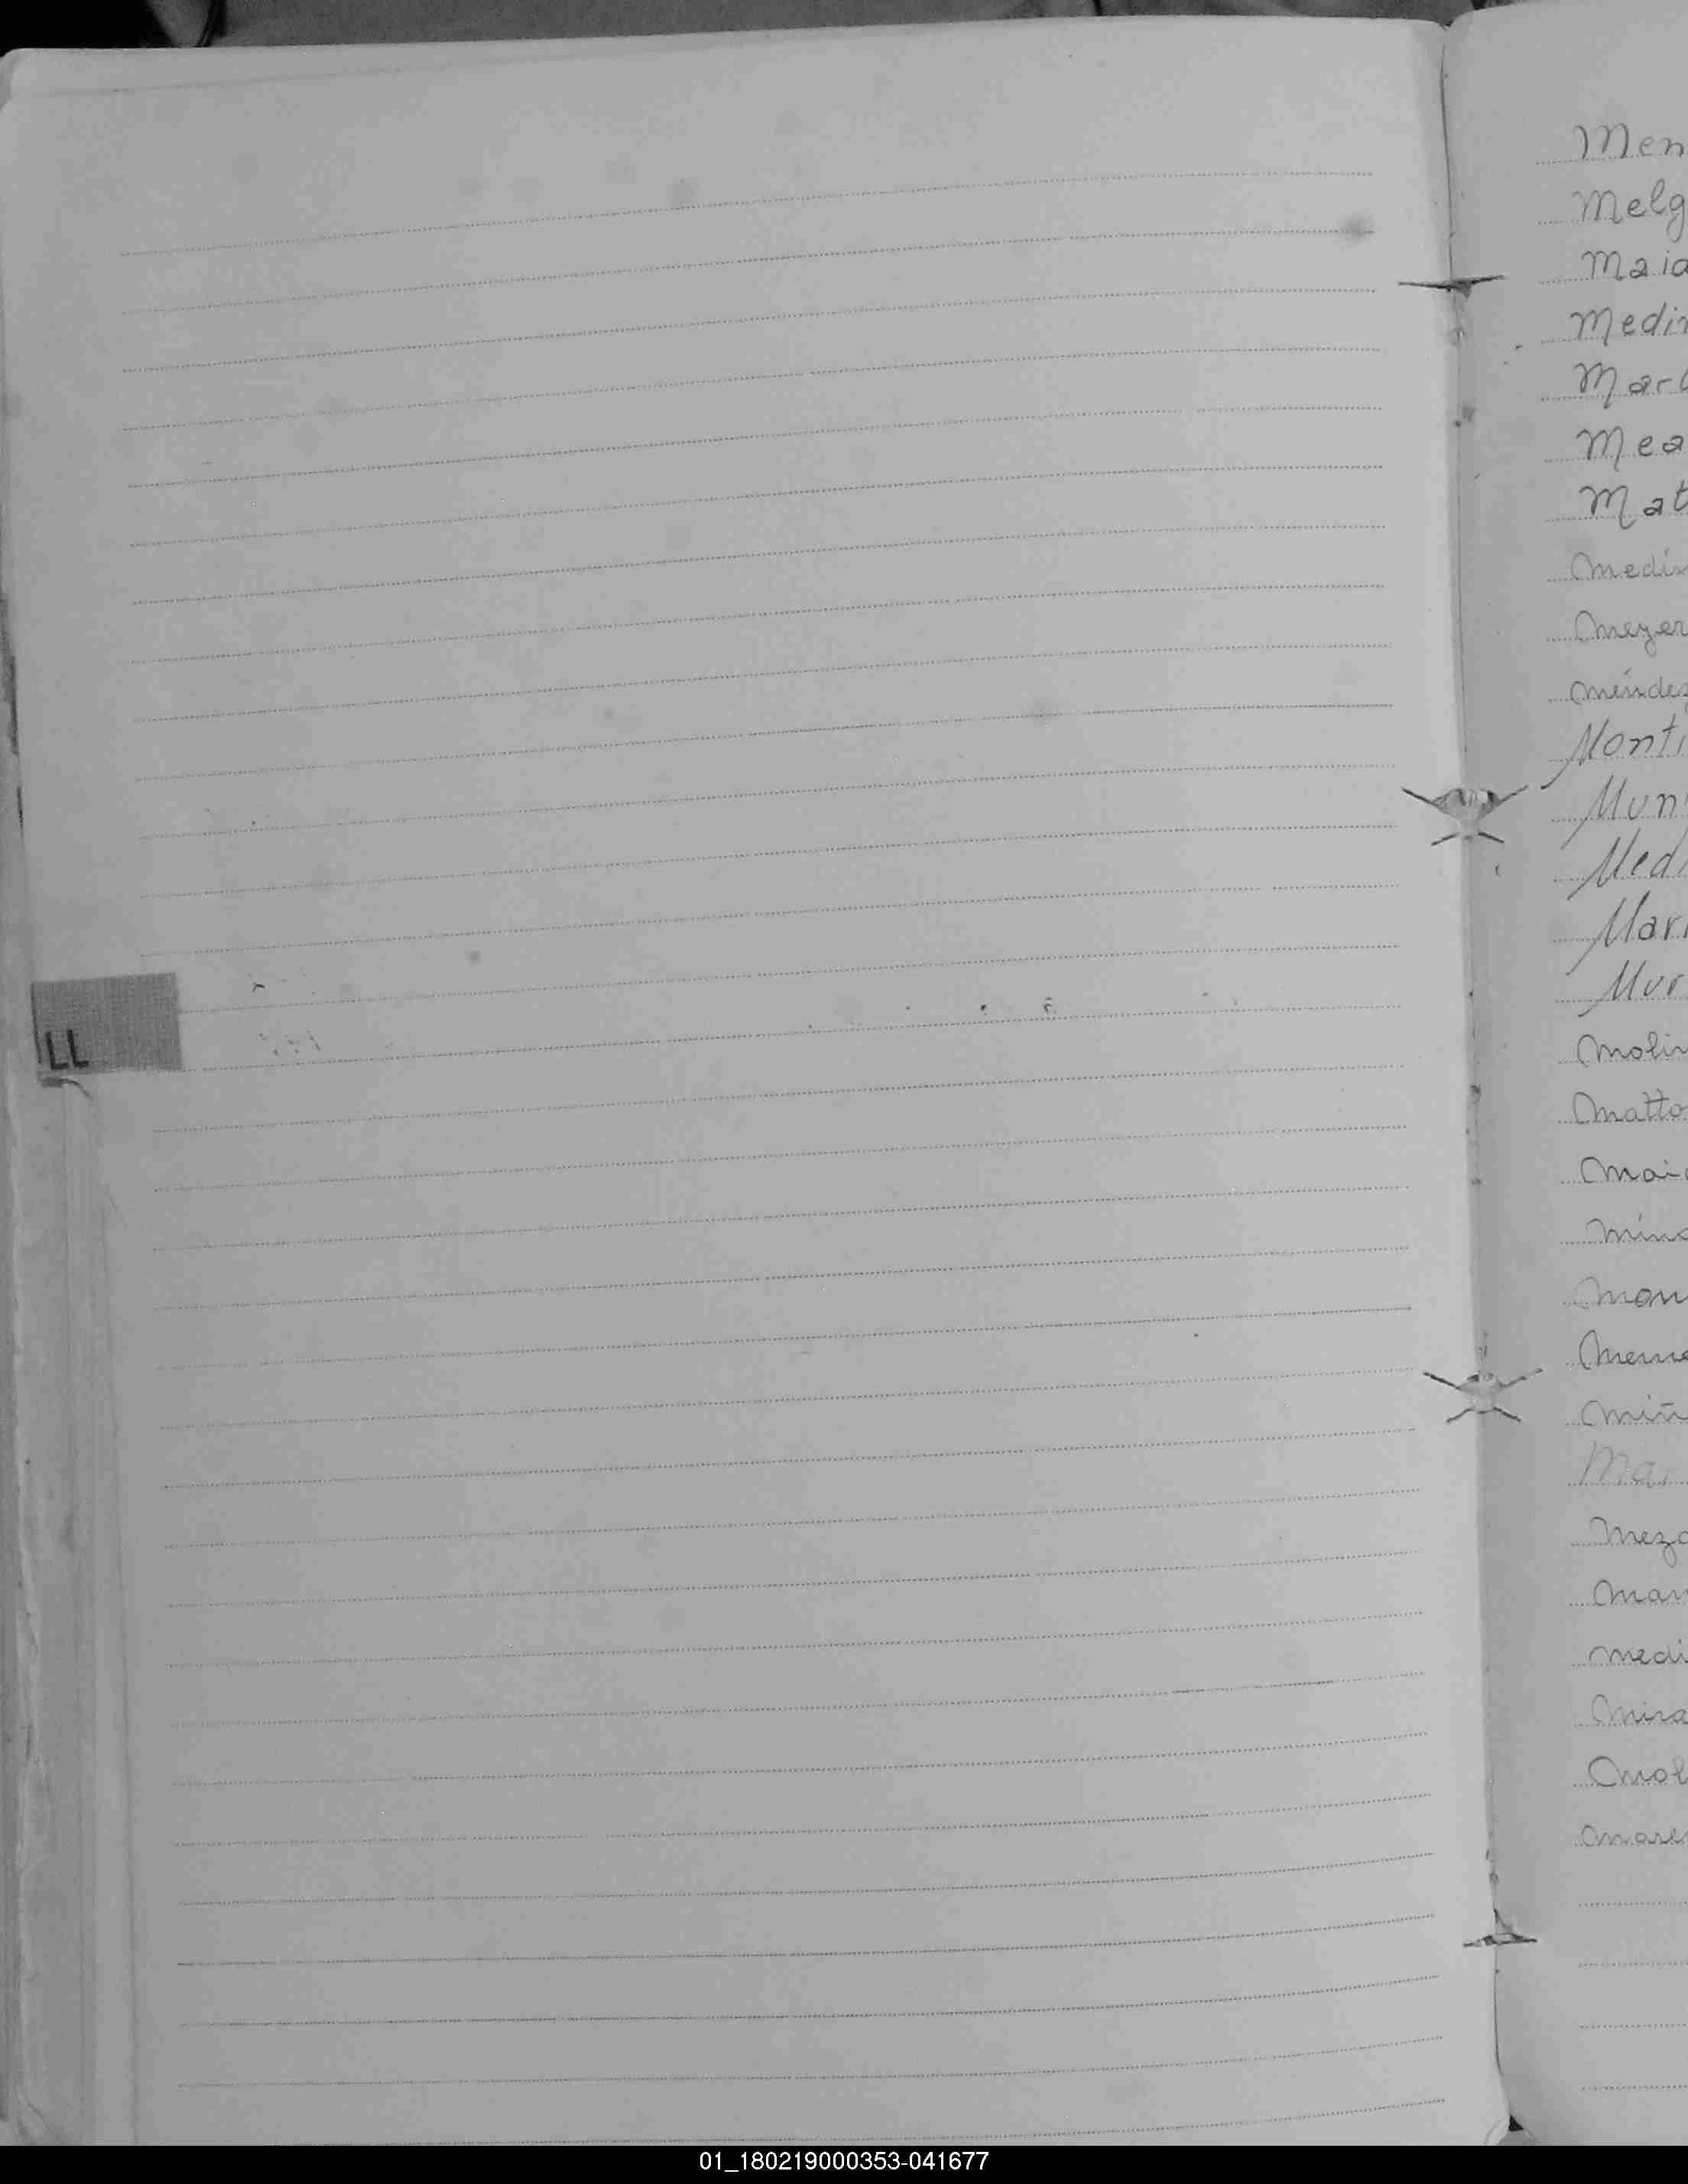 LL
Men
Melg
Maia
Medin
Mar
Mea
Mat
Medin
Meyer
Méndez
Monti
Mun
Medi
Mari
Mor
Molin
Matto
Mai
Min
Meza
Man
Medi
Mira
Mol
01_180219000353-041677